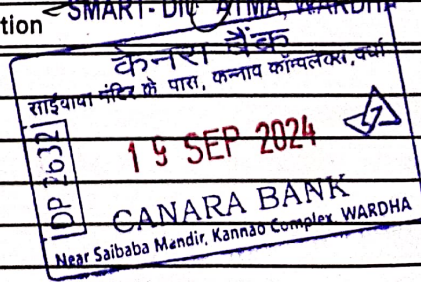 tion SMART-DIV ATMA, WARDHA
केनरा बैंक
साईबाबा मंदिर के पास, कन्नाव कॉम्पलेक्स, वर्धा
DP 2632
19 SEP 2024
CANARA BANK
Near Saibaba Mandir, Kannao Complex, WARDHA